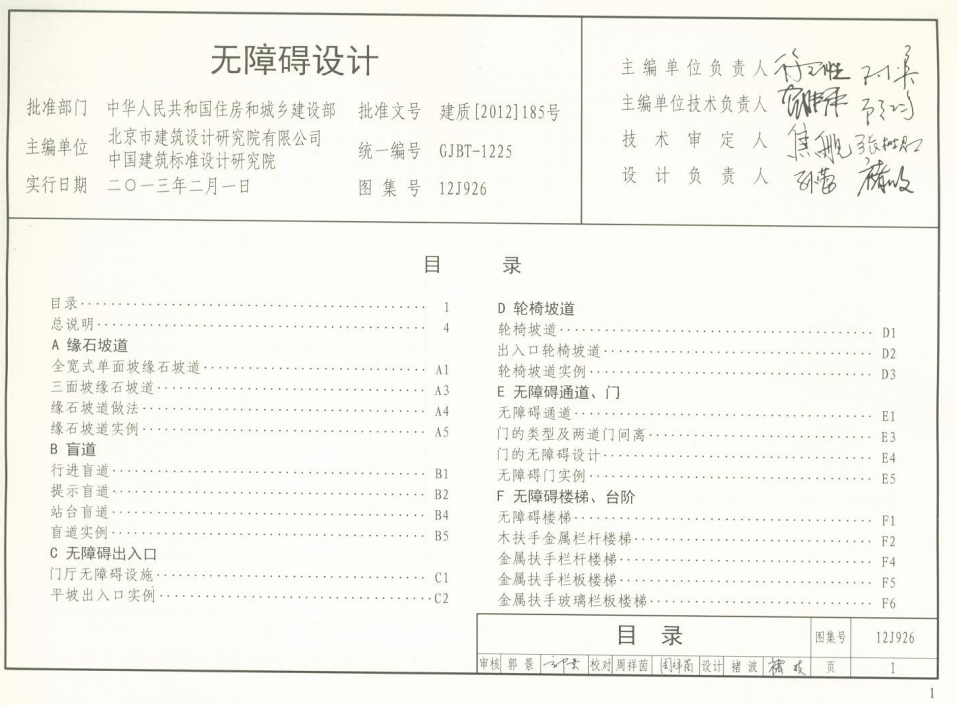 无障碍设计
批准部门 中华人民共和国住房和城乡建设部 批准文号 建质[2012]185号
主编单位 北京市建筑设计研究院有限公司
中国建筑标准设计研究院
统一编号 GJBT-1225
实行日期 二〇一三年二月一日 图集号 12J926
主编单位负责人
主编单位技术负责人
技术审定人
设计负责人
目 录
目录 1
总说明 4
A 缘石坡道
全宽式单面坡缘石坡道 A1
三面坡缘石坡道 A3
缘石坡道做法 A4
缘石坡道实例 A5
B 盲道
行进盲道 B1
提示盲道 B2
站台盲道 B4
盲道实例 B5
C 无障碍出入口
门厅无障碍设施 C1
平坡出入口实例 C2
D 轮椅坡道
轮椅坡道 D1
出入口轮椅坡道 D2
轮椅坡道实例 D3
E 无障碍通道、门
无障碍通道 E1
门的类型及两道门间离 E3
门的无障碍设计 E4
无障碍门实例 E5
F 无障碍楼梯、台阶
无障碍楼梯 F1
木扶手金属栏杆楼梯 F2
金属扶手栏杆楼梯 F4
金属扶手栏板楼梯 F5
金属扶手玻璃栏板楼梯 F6
目 录 图集号 12J926
审核 郭景 校对 周祥茵 周祥茵 设计 褚波 页 1
1